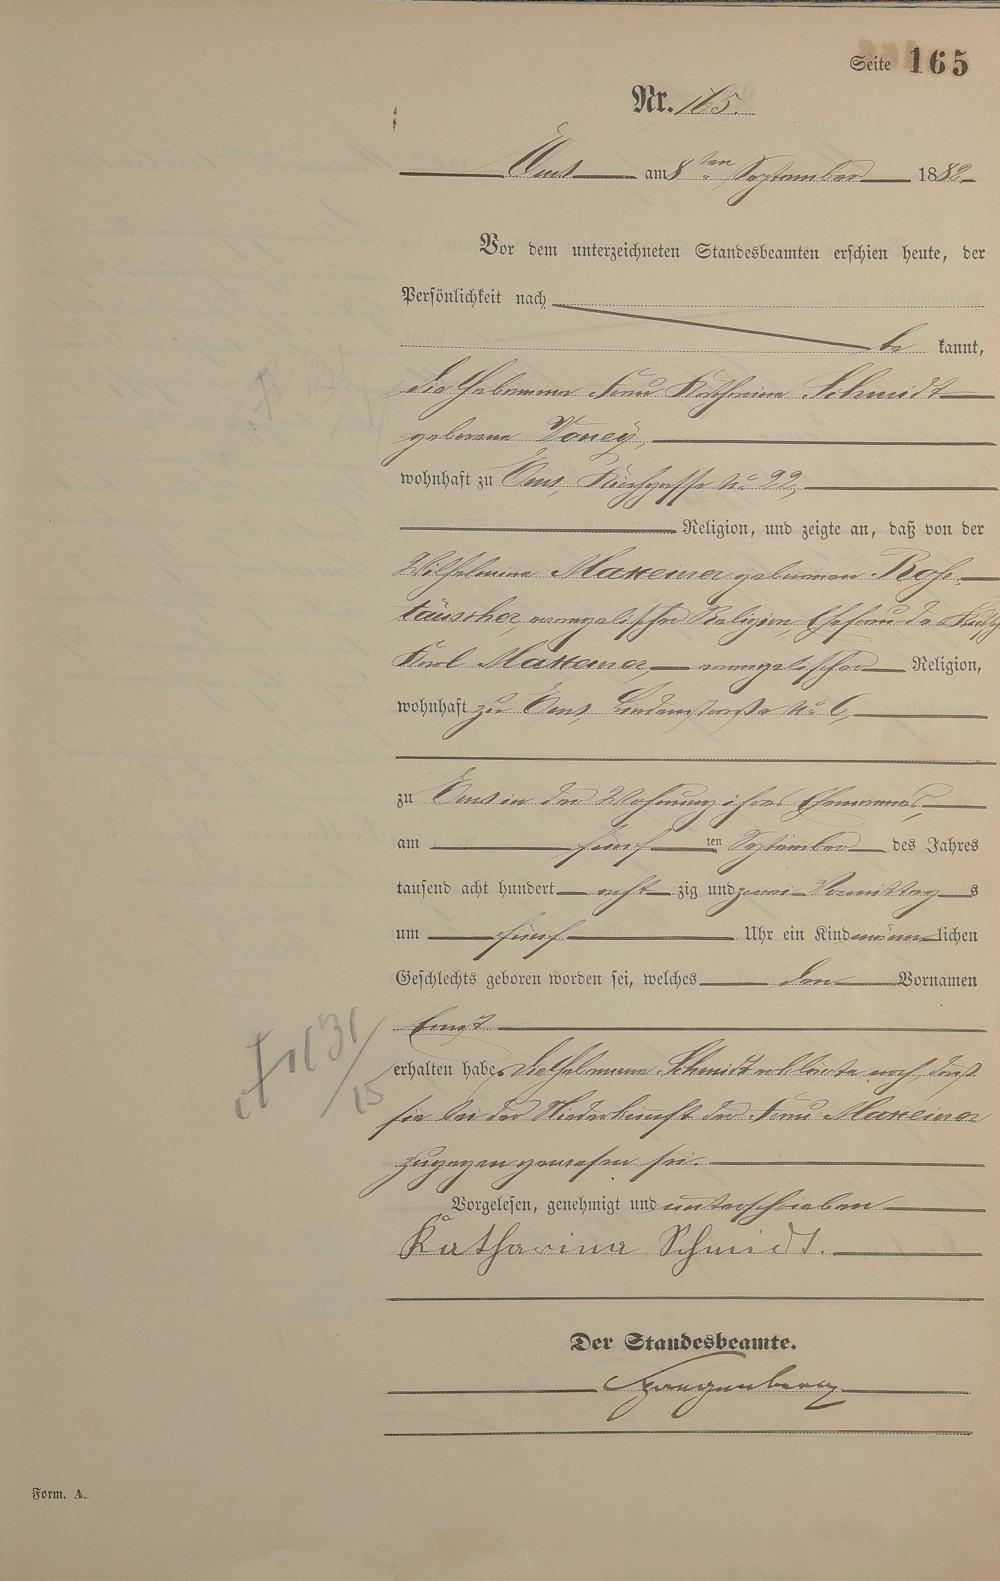 Seite 165
Nr. 165.
Ems am 8 ten September 1882
Vor dem unterzeichneten Standesbeamten erschien heute, der
Persönlichkeit nach
be kannt,
die Hebamme Frau Katharina Schmidt
geborene Voney,
wohnhaft zu Ems, Kirchgasse No 22,
Religion, und zeigte an, daß von der
Wilhelmine Maxeiner geborenen Roß-
täuscher, evangelischer Religion, Ehefrau des
Karl Maxeiner, evangelischer Religion,
wohnhaft zu Ems, Lindenstraße No 6,
zu Ems in der Wohnung ihres Ehemannes,
am fünf ten September des Jahres
tausend acht hundert acht zig und zwei Vormittag s
um fünf Uhr ein Kind männ lichen
Geschlechts geboren worden sei, welches den Vornamen
Ernst
erhalten habe. Die Hebamme Schmidt erklärte noch, daß
sie bei der Niederkunft der Frau Maxeiner
zugegen gewesen sei.
Vorgelesen, genehmigt und unterschrieben
Katharina Schmidt.
Der Standesbeamte.
Spangenberg
Form. A.